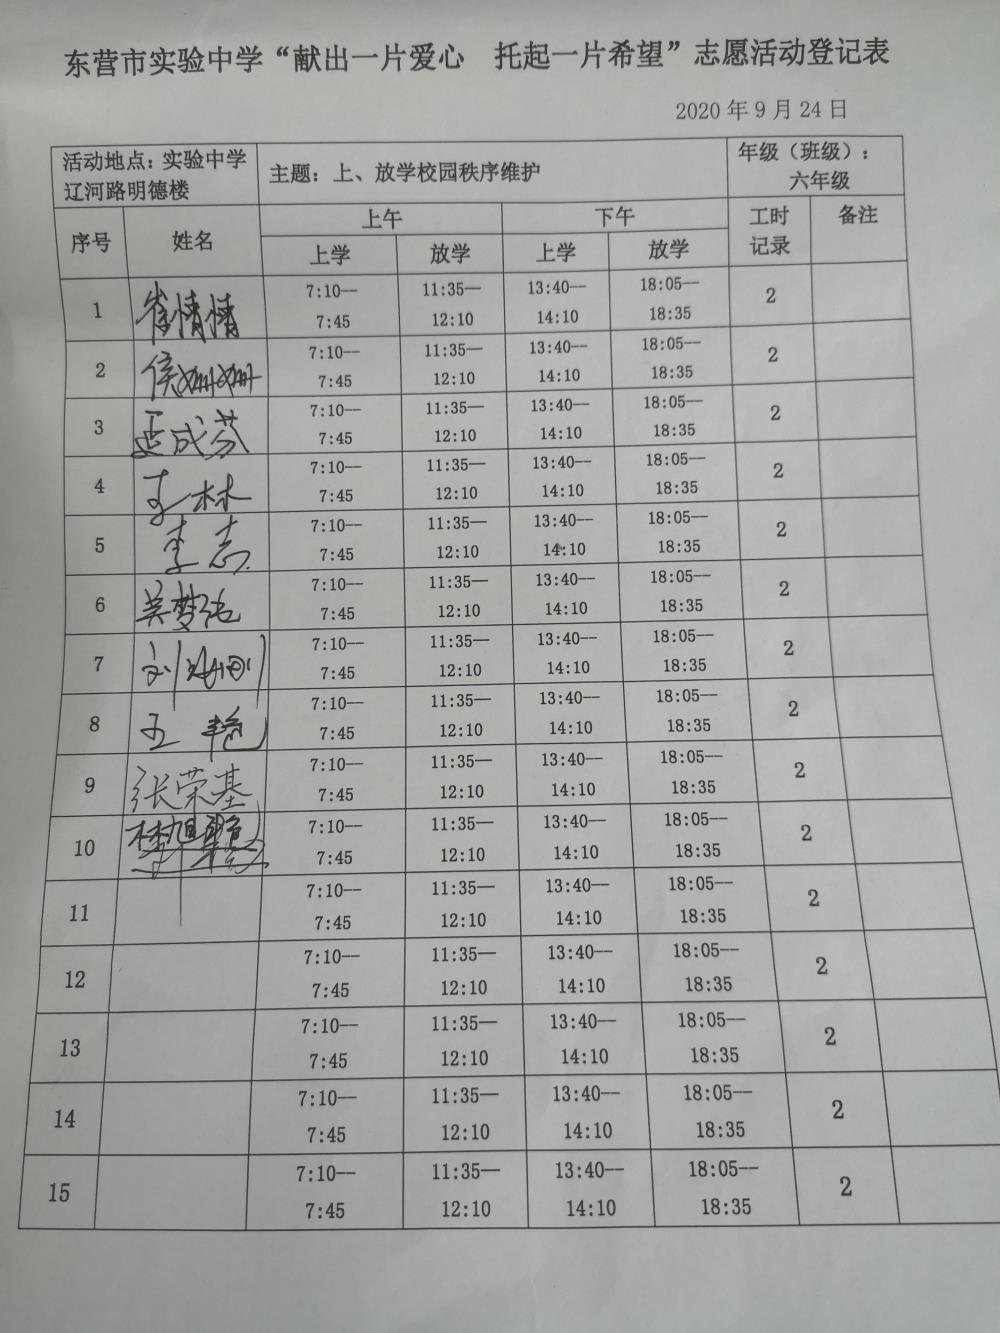 东营市实验中学“献出一片爱心 托起一片希望”志愿活动登记表
2020年9月24日
活动地点：实验中学
辽河路明德楼
主题：上、放学校园秩序维护
年级（班级）：
六年级
序号 姓名 上午 下午 工时记录 备注
上学 放学 上学 放学
1 崔情情 7:10— 11:35— 13:40— 18:05— 2
7:45 12:10 14:10 18:35
2 侯姗姗 7:10— 11:35— 13:40— 18:05— 2
7:45 12:10 14:10 18:35
3 孟成芬 7:10— 11:35— 13:40— 18:05— 2
7:45 12:10 14:10 18:35
4 王林 7:10— 11:35— 13:40— 18:05— 2
7:45 12:10 14:10 18:35
5 李志 7:10— 11:35— 13:40— 18:05— 2
7:45 12:10 14:10 18:35
6 吴梦 7:10— 11:35— 13:40— 18:05— 2
7:45 12:10 14:10 18:35
7 刘 刚 7:10— 11:35— 13:40— 18:05— 2
7:45 12:10 14:10 18:35
8 王艳 7:10— 11:35— 13:40— 18:05— 2
7:45 12:10 14:10 18:35
9 张荣基 7:10— 11:35— 13:40— 18:05— 2
7:45 12:10 14:10 18:35
10 7:10— 11:35— 13:40— 18:05— 2
7:45 12:10 14:10 18:35
11 7:10— 11:35— 13:40— 18:05— 2
7:45 12:10 14:10 18:35
12 7:10— 11:35— 13:40— 18:05— 2
7:45 12:10 14:10 18:35
13 7:10— 11:35— 13:40— 18:05— 2
7:45 12:10 14:10 18:35
14 7:10— 11:35— 13:40— 18:05— 2
7:45 12:10 14:10 18:35
15 7:10— 11:35— 13:40— 18:05— 2
7:45 12:10 14:10 18:35